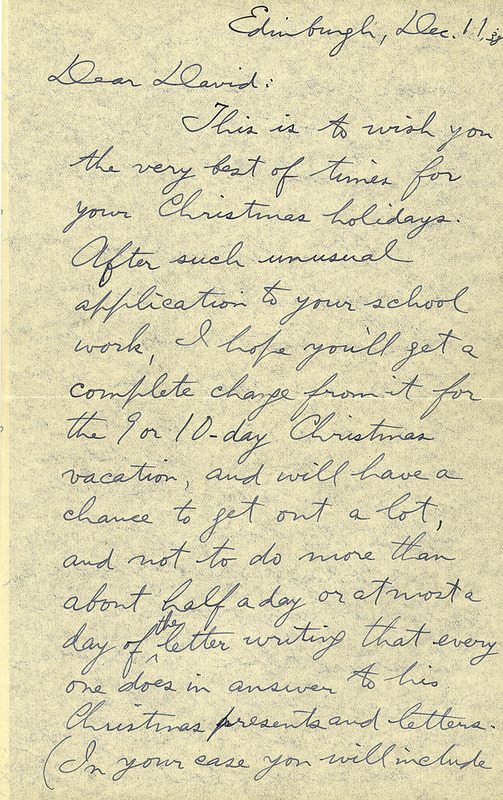 Edinburgh, Dec. 11, 38
Dear David:
This is to wish you
the very best of times for
your Christmas holidays.
After such unusual
application to your school
work, I hope you'll get a
complete change from it for
the 9 or 10-day Christmas
vacation, and will have a
chance to get out a lot,
and not to do more than
about half a day or at most a
day of the letter writing that every
one does in answer to his
Christmas presents and letters.
(In your case you will include